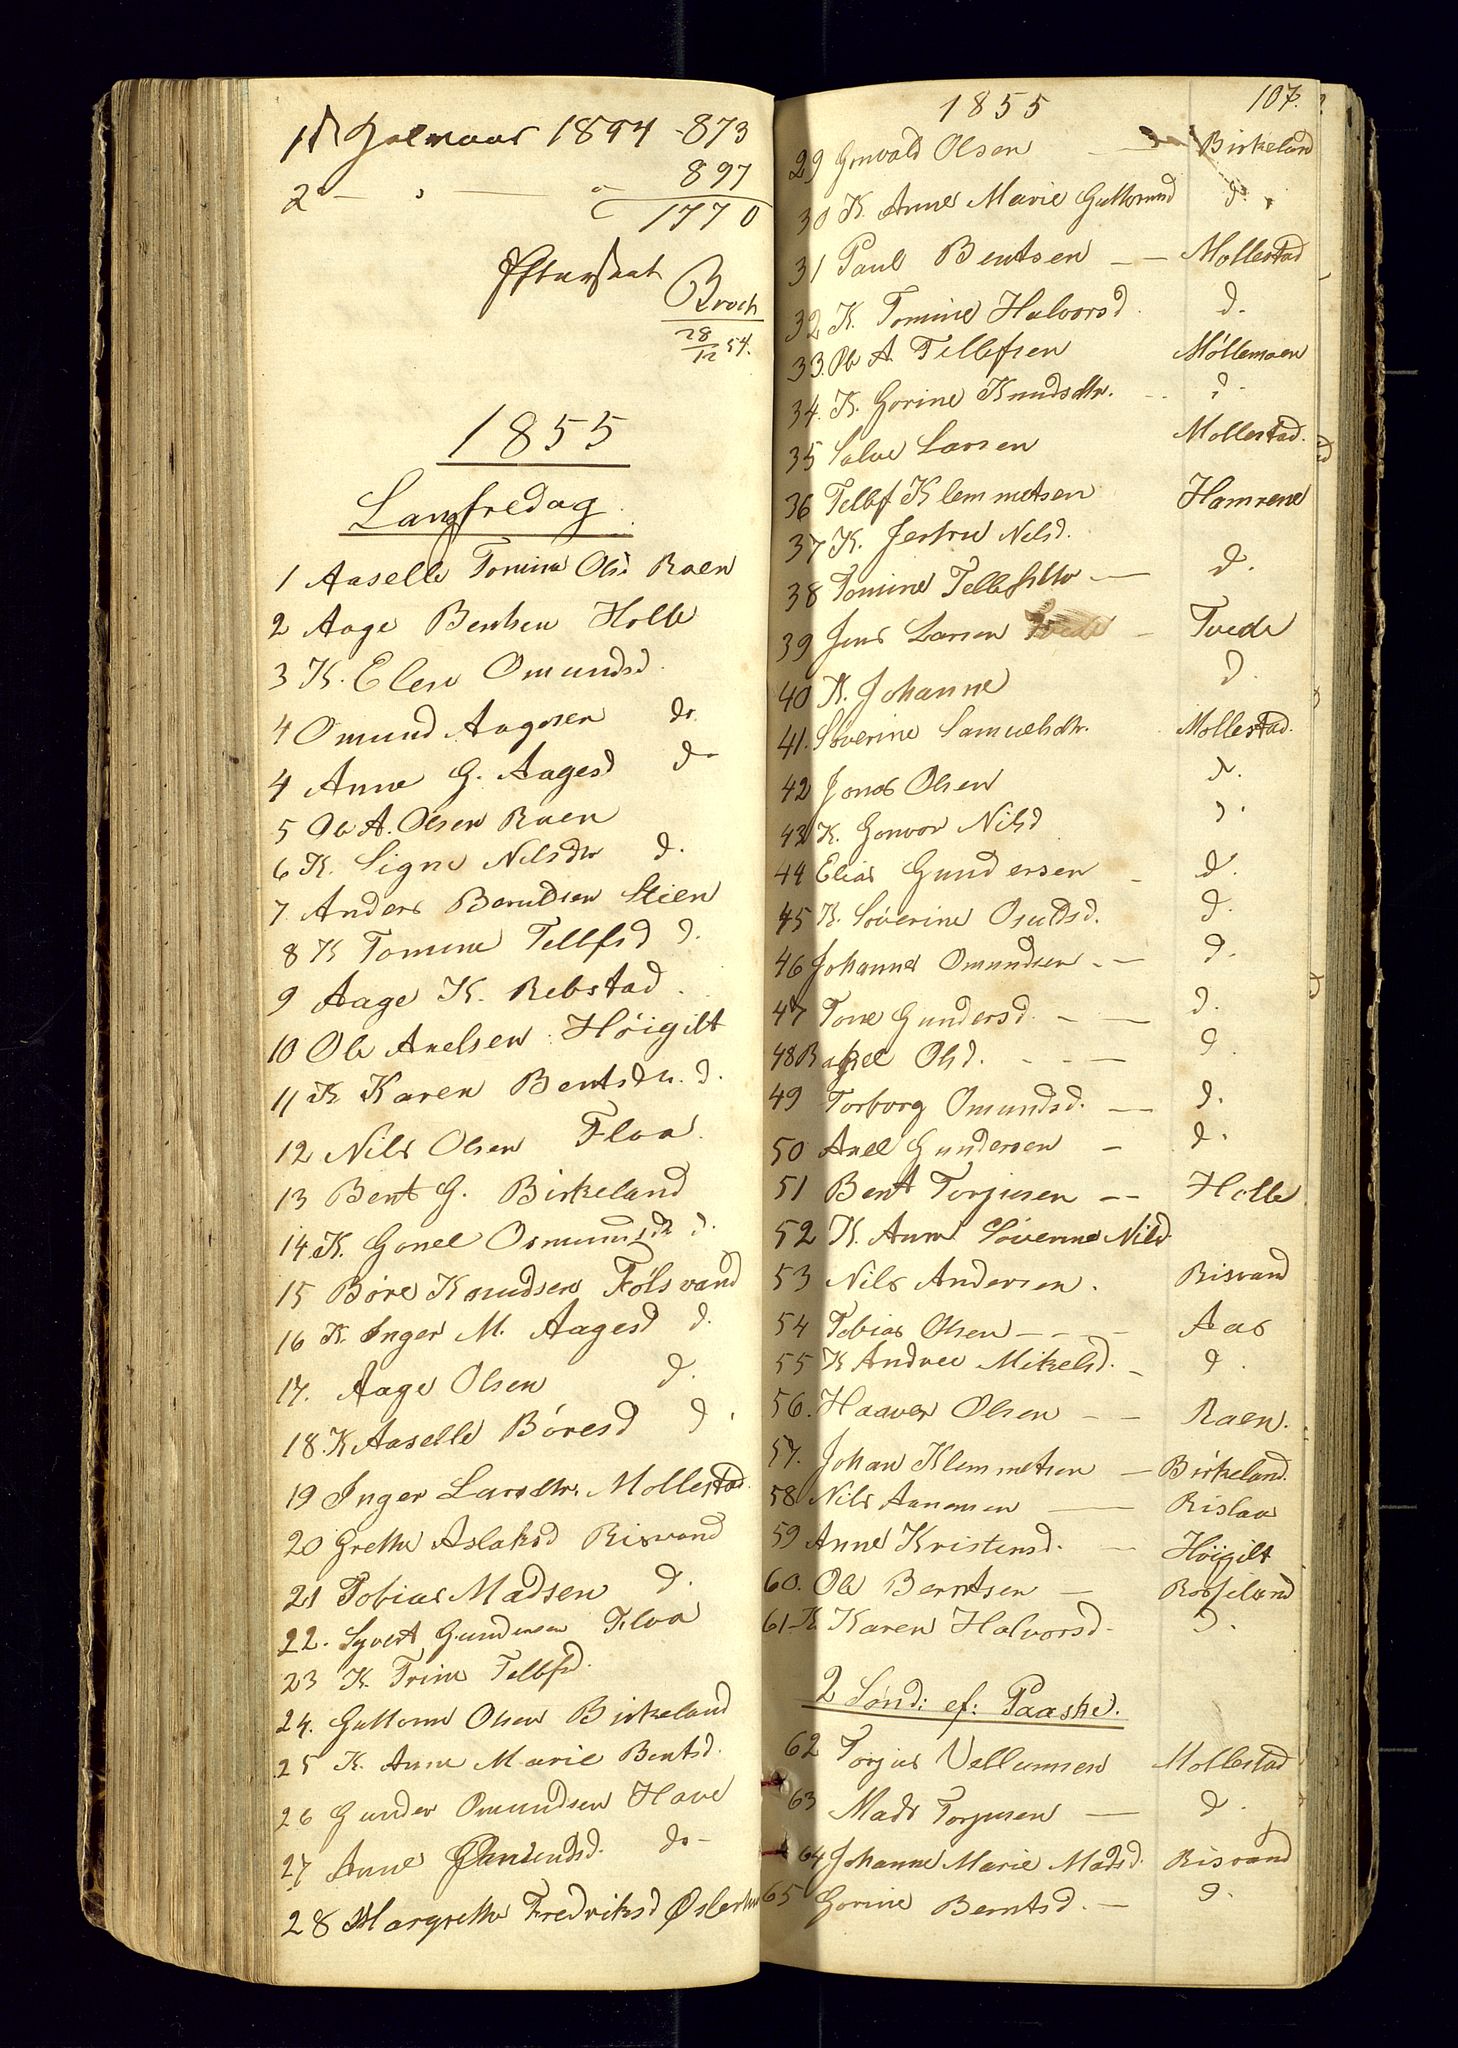 1st Halvaar 1854 - 873
2 - " - " 897
1770
Eftersaat
Broch
28/12 54.
1855
Langfredag
1 Aaselle Tomine Ols: Raen
2 Aage Bentsen Holle
3 K. Elen Omundsd.
4 Omund Aagesen do.
4 Anne G. Aagesd do
5 Ole A. Olsen Raen
6 K. Signe Nilsdtr d.
7 Anders Berndsen Stien
8 K Tomine Tellefsd d.
9 Aage K. Rebstad.
10 Ole Axelsen Höigilt
11 K Karen Bentsdtr. d.
12 Nils Olsen Floa.
13 Bent G. Birkeland
14. K. Gonel Osmundsdtr d.
15 Böre Knudsen Fölsvand
16 K. Inger M. Aagesd d.
17. Aage Olsen d.
18. K Aaselle Böresd d.
19 Inger Larsdtr. Mollestad.
20 Grethe Aslaksd Risvand
21 Tobias Madsen d.
22. Syvert Gundersen Floa
23 K. Trine Tellefsd.
24. Guttorm Olsen Birkeland
25 K. Anne Marie Bentsd.
26 Gunder Omundsen Have
27 Anne Omundsd. do -
28 Margrethe Fredriksd
1855 107.
29 Gonvald Olsen — Birkeland
30 K. Anne Marie Guttormsd d.
31 Paul Bentsen — Mollestad
32 K. Tomine Halvorsd. d.
33. Ole A. Tellefsen Möllemoen
34. K. Gorine Knudsdtr. d.
35 Salve Larsen Mollestad.
36 Tellef Klemmetsen Hamrene
37 K. Jertru Nilsd.
38 Tomine Tellefsdtr — d.
39 Jens Larsen Tvede — Tvede
40 K. Johanne d.
41. Söverine Samuelsdtr. Mollestad.
42 Jonas Olsen d.
43 K. Gonvor Nilsd d.
44 Elias Gundersen — d.
45 K. Söverine Osuldsd. d.
46 Johannes Omundsen — d.
47 Tone Gundersd. — d.
48 Rakel Olsd. — d.
49 Torborg Omundsd. — d.
50 Axel Gundersen — d.
51 Bent Torjusen — Holle
52 K. Anne Söverine Nilsd.
53 Nils Andersen. Risvand
54 Tobias Olsen — Aas
55 K Andrea Mikelsd. — d.
56. Haaver Olsen — Raen.
57. Johan Klemmetsen — Birkeland.
58 Nils Aanonsen — Rislaa
59 Anne Kristensd. — Höigilt
60. Ole Berntsen — Rosseland
61 K Karen Halvorsd. d.
2 Sönd: ef: Paaske.
62 Torjus Vellumsen Mollestad
63 Mads Torjusen — d.
64 Johanne Marie Madsd. Risvand
65 Gorine Berntsd. — d.